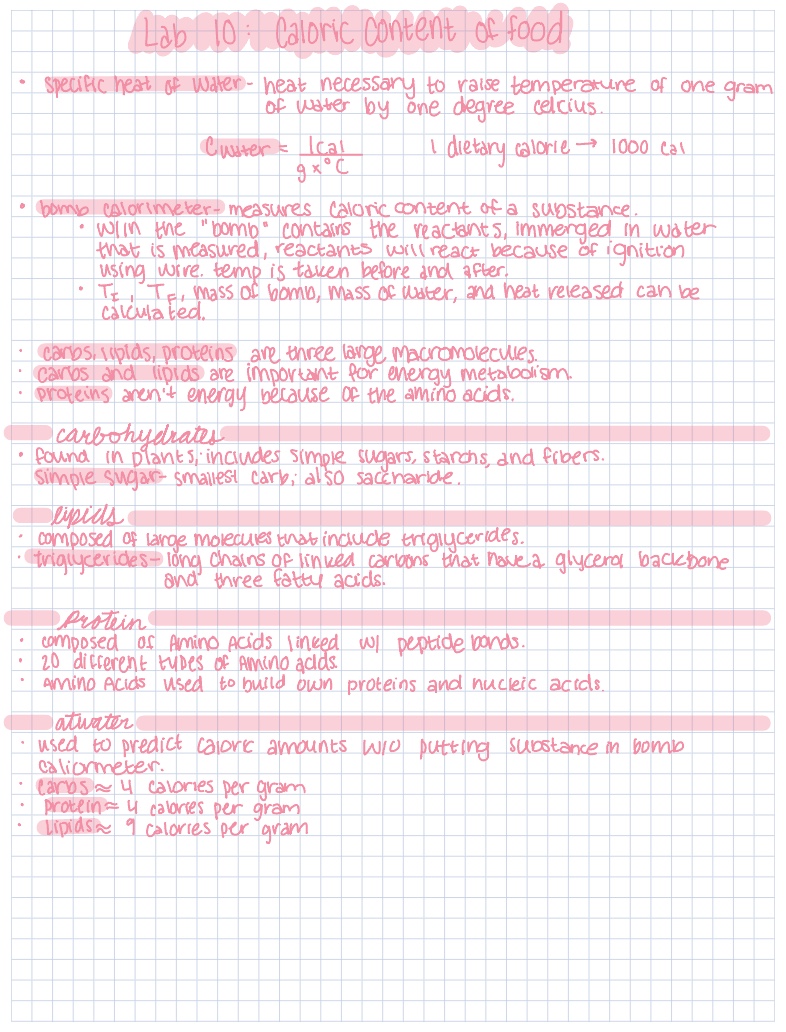 Lab 10: Caloric Content of food
• specific heat of water - heat necessary to raise temperature of one gram
of water by one degree celcius.
Cwater = 1cal / g x °C 1 dietary calorie → 1000 cal
• bomb calorimeter - measures caloric content of a substance.
• w/in the "bomb" contains the reactants, immerged in water
that is measured, reactants will react because of ignition
using wire. temp is taken before and after.
• TI, TF, mass of bomb, mass of water, and heat released can be
calculated.
• carbs, lipids, proteins are three large macromolecules.
• carbs and lipids are important for energy metabolism.
• proteins aren't energy because of the amino acids.
carbohydrates
• found in plants, includes simple sugars, starchs, and fibers.
simple sugar - smallest carb, also saccharide.
lipids
• composed of large molecules that include triglycerides.
• triglycerides - long chains of linked carbons that have a glycerol backbone
and three fatty acids.
Protein
• composed of Amino Acids linked w/ peptide bonds.
• 20 different types of Amino acids
• Amino Acids used to build own proteins and nucleic acids.
atwater
• used to predict caloric amounts w/o putting substance in bomb
caliormeter.
• carbs ≈ 4 calories per gram
• protein ≈ 4 calories per gram
• Lipids ≈ 9 calories per gram